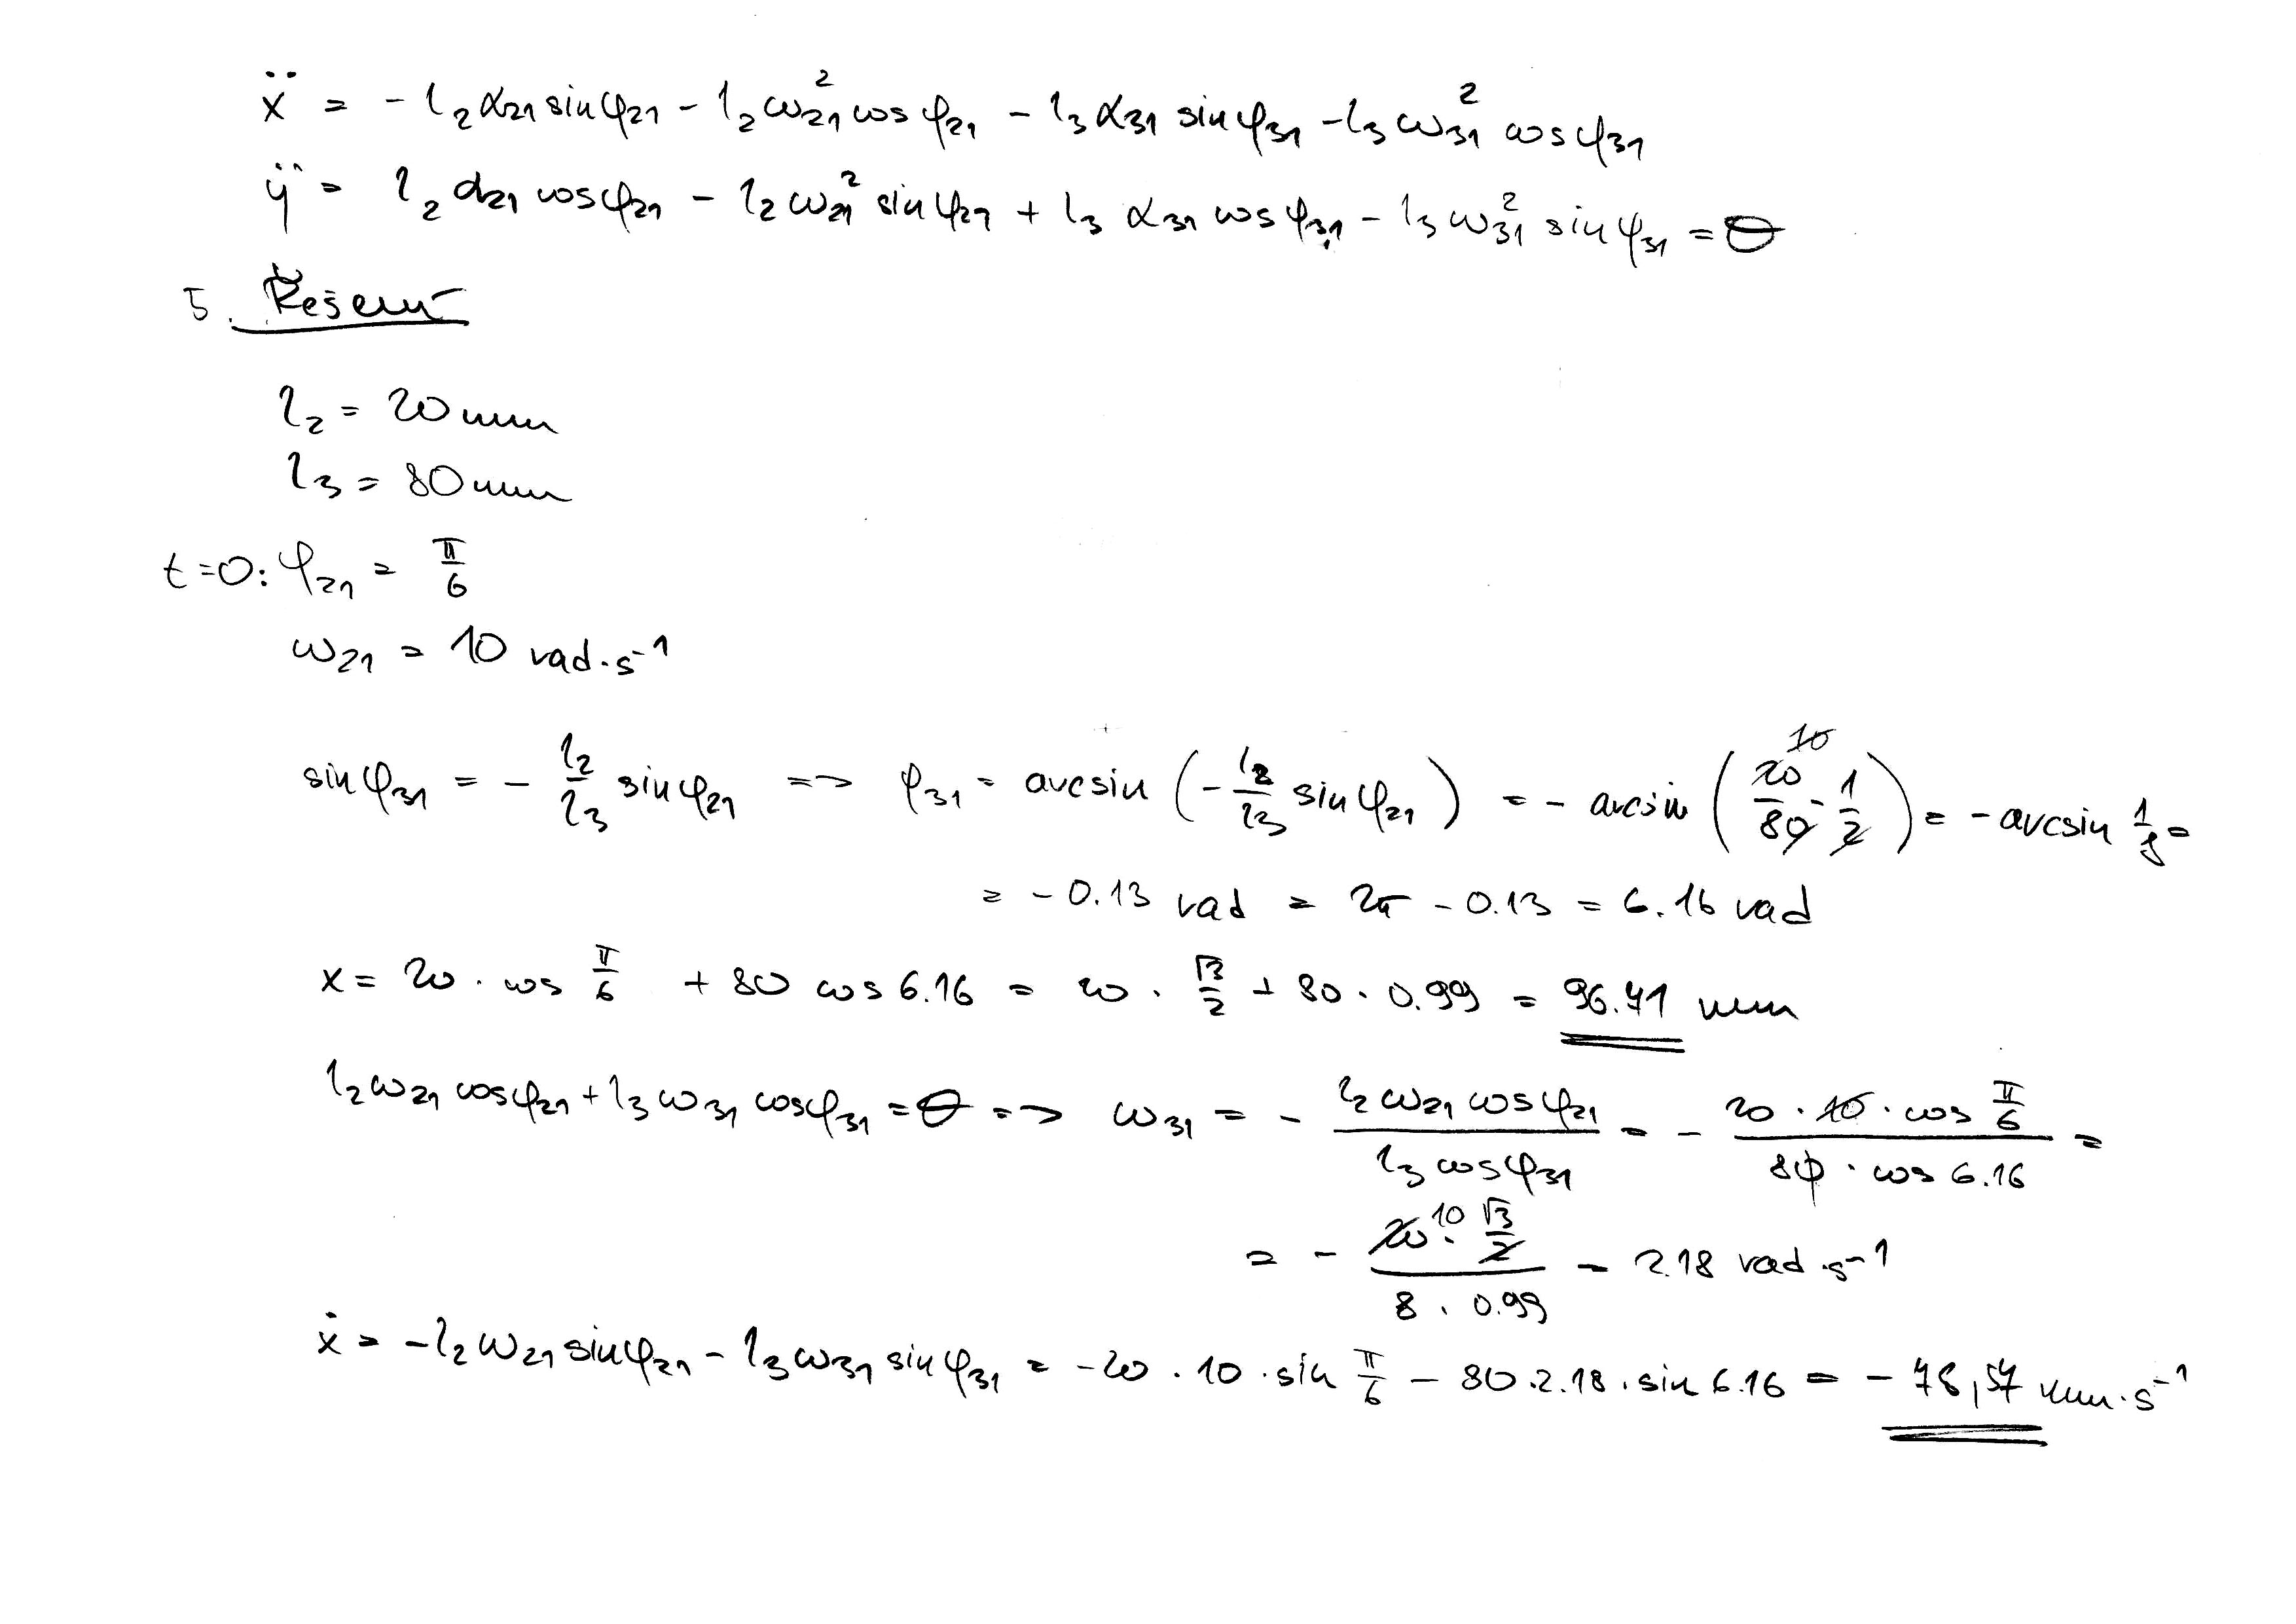 ẍ = - l₂ α₂₁ sin φ₂₁ - l₂ ω₂₁² cos φ₂₁ - l₃ α₃₁ sin φ₃₁ - l₃ ω₃₁² cos φ₃₁
ÿ = l₂ α₂₁ cos φ₂₁ - l₂ ω₂₁² sin φ₂₁ + l₃ α₃₁ cos φ₃₁ - l₃ ω₃₁² sin φ₃₁ = 0
5. Řešení
l₂ = 20 mm
l₃ = 80 mm
t=0: φ₂₁ = π/6
ω₂₁ = 10 rad·s⁻¹
sin φ₃₁ = - l₂/l₃ sin φ₂₁ => φ₃₁ = arcsin (- l₂/l₃ sin φ₂₁) = - arcsin (20/80 · 1/2) = - arcsin 1/8 =
= - 0.13 rad = 2π - 0.13 = 6.16 rad
x = 20 · cos π/6 + 80 cos 6.16 = 20 · √3/2 + 80 · 0.99 = 96.41 mm
l₂ ω₂₁ cos φ₂₁ + l₃ ω₃₁ cos φ₃₁ = 0 => ω₃₁ = - l₂ ω₂₁ cos φ₂₁ / l₃ cos φ₃₁ = - 20 · 10 · cos π/6 / 80 · cos 6.16 =
= - 20 · 10 √3/2 / 8 · 0.99 - 2.18 rad·s⁻¹
ẋ = - l₂ ω₂₁ sin φ₂₁ - l₃ ω₃₁ sin φ₃₁ = -20 · 10 · sin π/6 - 80 · 2.18 · sin 6.16 = - 78,57 mm·s⁻¹